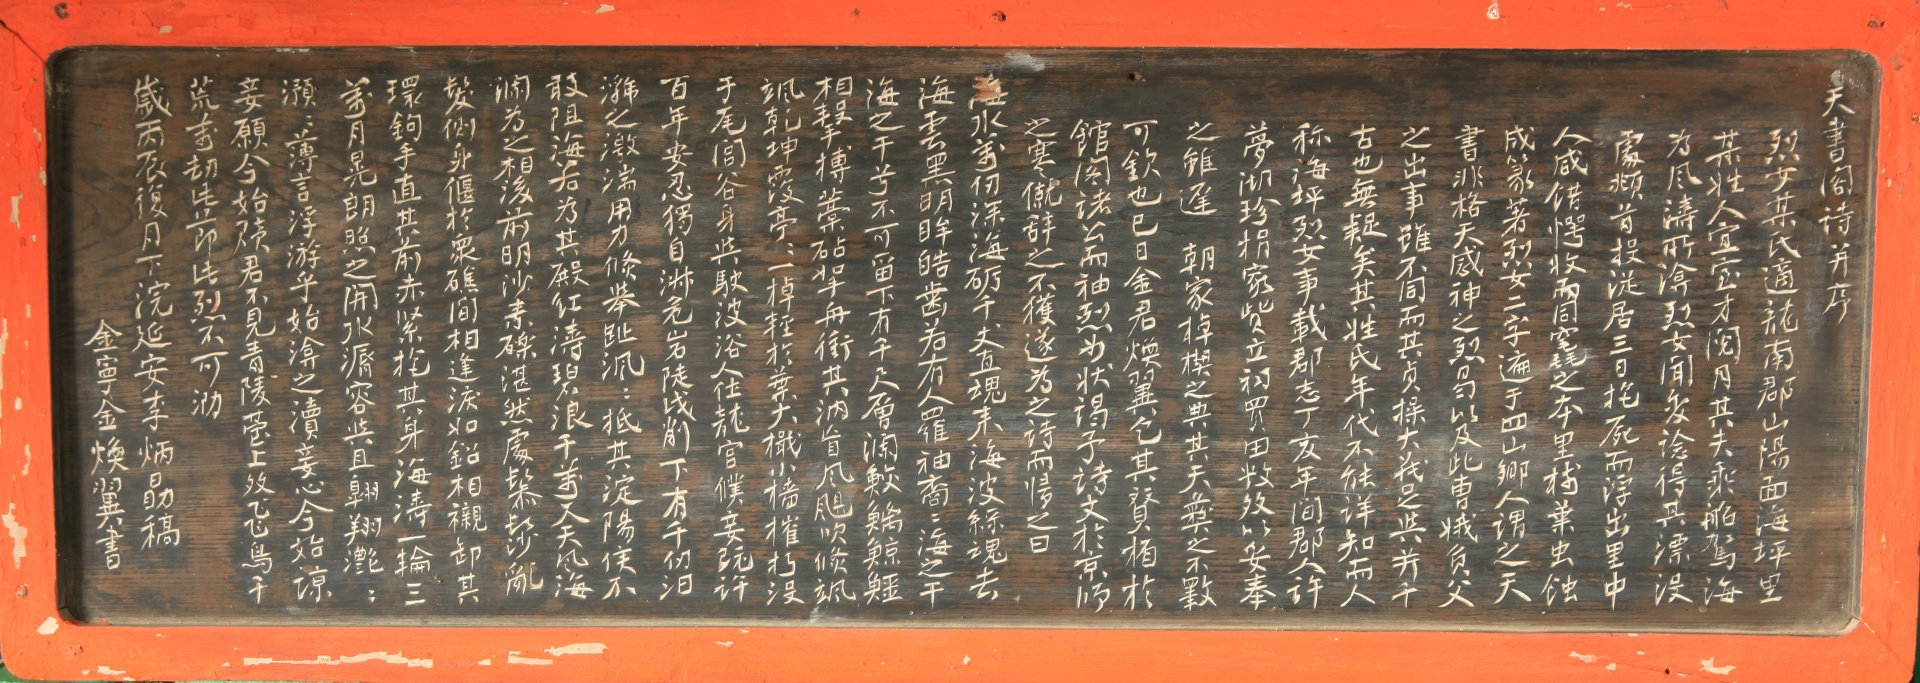 天書閣詩并序
烈女某氏適龍南郡山陽面海坪里
某姓人宜室才閱月其夫乘船駕海
為風濤所渰烈女聞變詮得其漂沒
處頻首投從居三日抱死而浮出里中
人咸錯愕收而同窆之本里樹葉虫蝕
成篆著烈女二字遍于四山鄉人謂之天
書非格天感神之烈曷以及此曹娥負父
之出事雖不同而其貞操大義足與并千
古也無疑矣其姓氏年代不能詳知而人
称海坪烈女事載郡志丁亥年間郡人許
夢湖珍捐家貲立祠買田數畝以妥奉
之雖遲 朝家棹楔之典其天彝之不斁
可欽也已日金君煥翼乞其賛楣於
館閣諸公而袖烈女状谒予詩文於京師
之寒僦辞之不獲遂為之詩而歸之曰
海水萬仞深海砺千丈直魂来海波綠魂去
海雲黑明眸皓齒若有人羅袖裔〻海之干
海之干兮不可留下有千尺層瀾鮫鱅鯨鱷
相擊搏藁砧半舟衝其汭盲風颶吹倏颯
颯乾坤霞亭〻一棹輕於葉大檝小檣摧朽沒
于尾閭谷身與駛波浴人住龍宮僕妾阮許
百年安忍獨自淋危岩陡戌削下有千仞汩
㴜之漵湍用力倏攀趾汎〻抵其淀陽侯不
敢阻海若為其殿紅濤碧浪千萬又天風海
瀾為之相後前明沙素礫湛然處鬆髿亂
鬘側身偃於衆礁間相逢淚如鉛相襯卸其
環鉤手直其前赤緊抱其身海濤一輪三
萬月晃朗照之開水漘容與且翱翔灔〻
灝〻薄言浮游乎始渰之瀆妾心今始諒
妾願今始贖君不見青陵臺上雙飛鳥千
荒萬劫此節此烈不可泐
歲丙辰復月下浣延安李炳勗稿
金寧金煥翼書